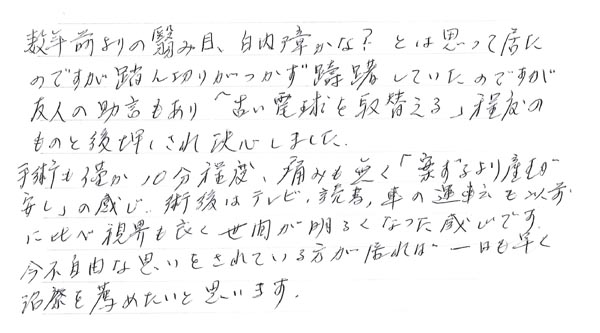 数年前よりの翳み目、白内障かな？とは思って居た
のですが踏ん切りがつかず躊躇していたのですが
友人の助言もあり「古い電球を取替える」程度の
ものと後押しされ決心しました.
手術も僅か10分程度、痛みも無く「案ずるより産むが
安し」の感じ.術後はテレビ、読書、車の運転も以前
に比べ視界も良く世間が明るくなった感じです.
今不自由な思いをされている方が居れば一日も早く
治療を薦めたいと思います.